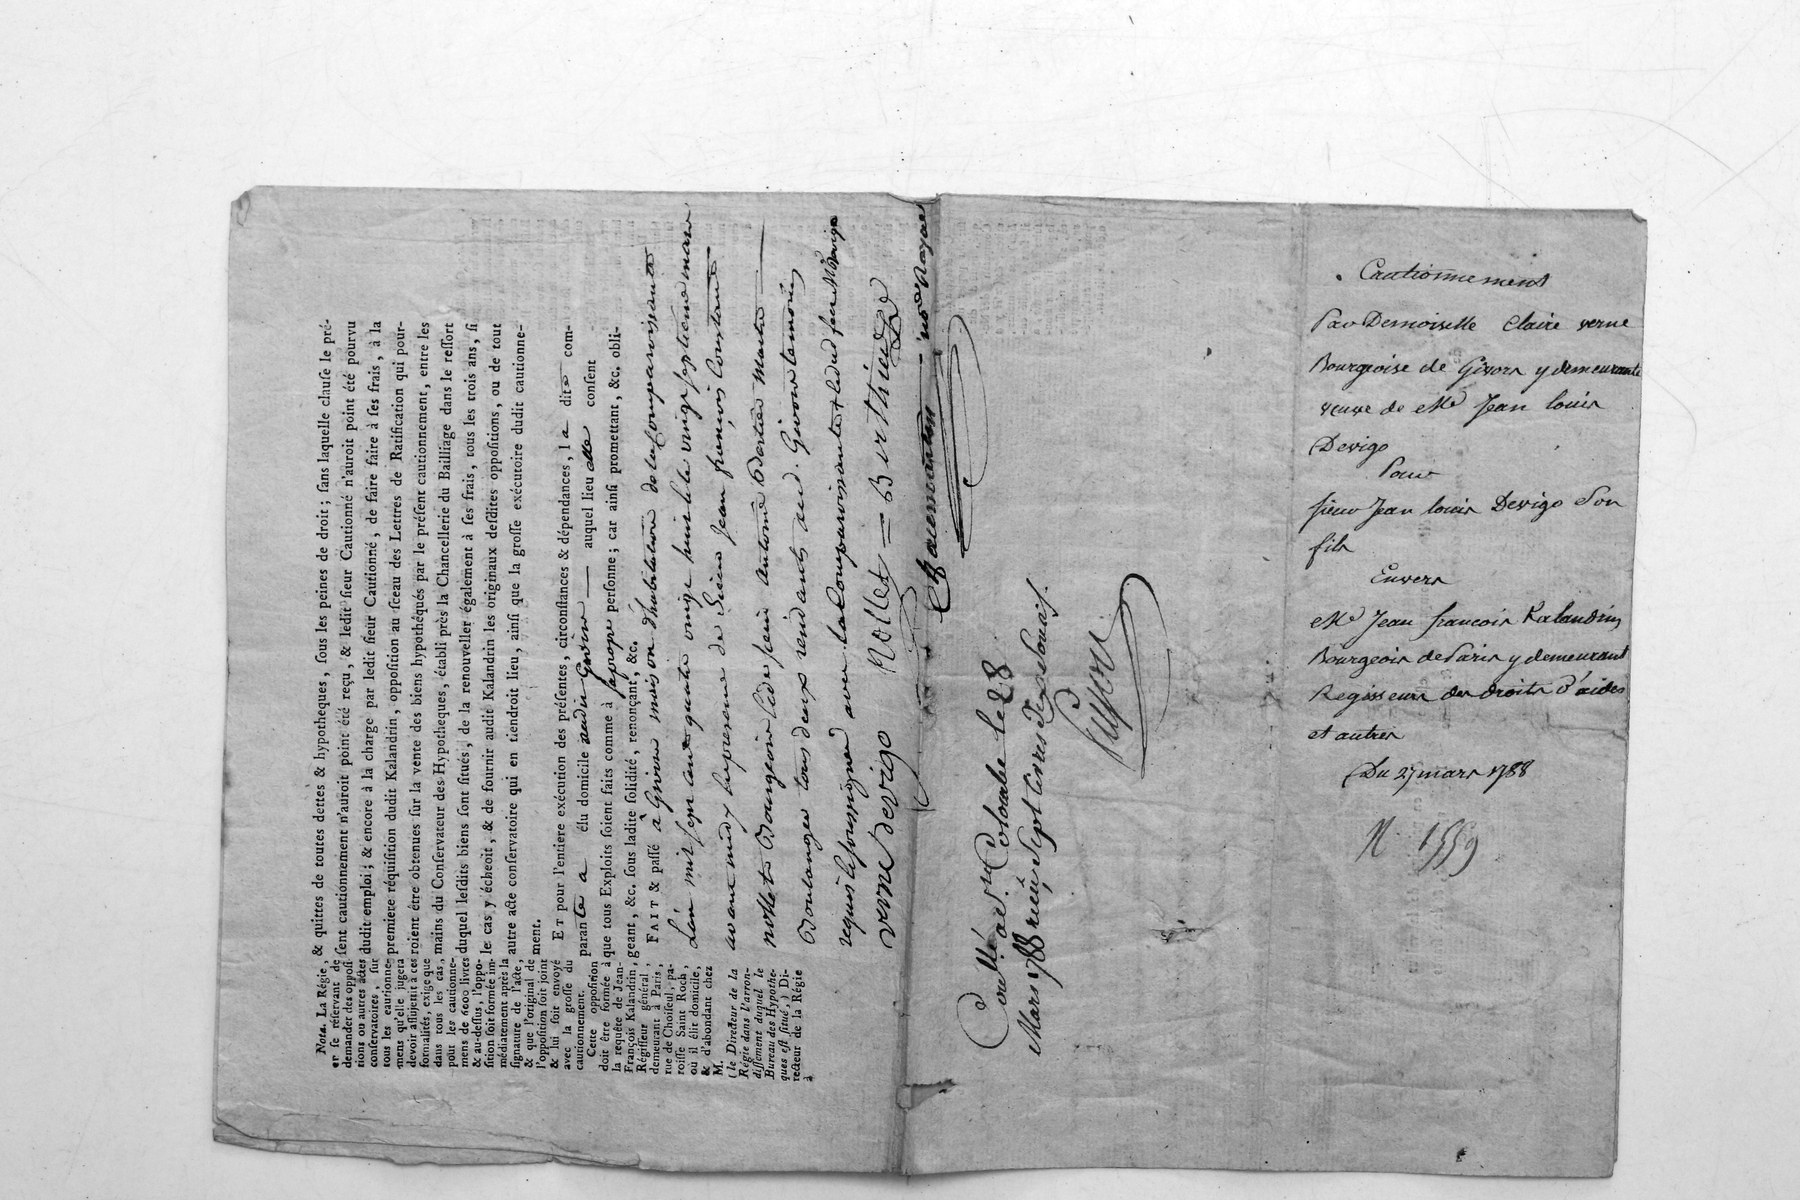 & quittes de toutes dettes & hypotheques, ſous les peines de droit ; ſans laquelle clauſe le pré-
ſent cautionnement n'auroit point été reçu, & ledit ſieur Cautionné n'auroit point été pourvu
dudit emploi ; & encore à la charge par ledit ſieur Cautionné, de faire faire à ſes frais, à la
premiere réquiſition dudit Kalandrin, oppoſition au ſceau des Lettres de Ratification qui pour-
roient être obtenues ſur la vente des biens hypothéqués par le préſent cautionnement, entre les
mains du Conſervateur des Hypotheques, établi près la Chancellerie du Bailliage dans le reſſort
duquel leſdits biens ſont ſitués, de la renouveller également à ſes frais, tous les trois ans, ſi
le cas y écheoit, & de fournir audit Kalandrin les originaux deſdites oppoſitions, ou de tout
autre acte conſervatoire qui en tiendroit lieu, ainſi que la groſſe exécutoire dudit cautionne-
ment.
ET pour l'entiere exécution des préſentes, circonſtances & dépendances, la dite com-
parante a élu domicile audit Givors auquel lieu elle conſent
que tous Exploits ſoient faits comme à ſa propre perſonne ; car ainſi promettant, &c. obli-
geant, &c. ſous ladite ſolidité, renonçant, &c.
FAIT & paſſé à Givors maison d'habitation de la comparoissante
L'an mil sept cent quatre vingt huit le vingt septieme mars
avant midy en presence de Sieurs Jean françois Constant
nollet Bourgeois & de sieur antoine Bertier maitre
Boulanger tous deux residants aud. Givors temoins
requis le soussigné avec la comparoissante & led. sieur Devigo
verne devigo Nollet Berthier
not. Royal
Nota. La Régie,
en ſe réſervant de
demander des oppoſi-
tions ou autres actes
conſervatoires, ſur
tous les cautionne-
mens qu'elle jugera
devoir aſſujettir à ces
formalités, exige que
dans tous les cas,
pour les cautionne-
mens de 6600 livres
& au-deſſus, l'oppo-
ſition ſoit formée im-
médiatement après la
ſignature de l'acte,
& que l'original de
l'oppoſition ſoit joint
& lui ſoit envoyé
avec la groſſe du
cautionnement.
Cette oppoſition
doit être formée à
la requête de Jean-
François Kalandrin,
Régiſſeur général,
demeurant à Paris,
rue de Choiſeul, pa-
roiſſe Saint Roch,
où il élit domicile,
& d'abondant chez
M.
(le Directeur de la
Régie dans l'arron-
diſſement duquel le
Bureau des Hypothe-
ques eſt ſitué,) Di-
recteur de la Régie
à
Coullé a Ste Colombe le 28
Mars 1788 reçu Sept livres dix sous
Cautionnement
Par Demoiselle Claire verne
Bourgeoise de Givors y demeurante
veuve de Me Jean louis
Devigo
Pour
sieur Jean louis Devigo Son
fils
Envers
Me Jean francois Kalandrin
Bourgeois de Paris y demeurant
Regisseur des droits d'aides
et autres
Du 27 mars 1788
N. 1559